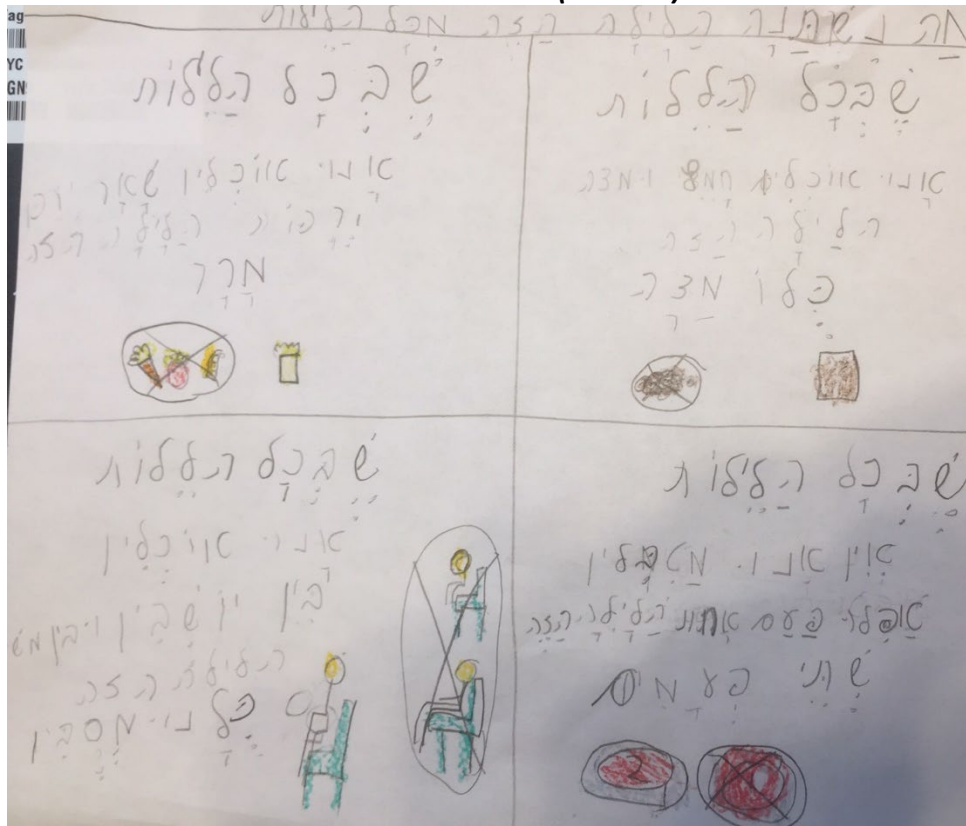 מַה נִשְׁתַּנָה הַלַיְלָה הַזֶה מִכָּל הַלֵילוֹת
שֶׁבְּכָל הַלֵלוֹת
אָנוּ אוֹכְלִים חָמֵץ וּמַצָה
הַלַיְלָה הַזֶה
כֻּלוֹ מַצָה
שֶׁבְּכָל הַלֵלוֹת
אָנוּ אוֹכְלִין שְׁאָר
יְרָקוֹת הַלַיְלָה הַזֶה
מָרָר
שֶׁבְּכָל הַלֵילוֹת
אֵין אָנוּ מַטְבִּלִין
אֲפִלוּ פַּעַם אַחַת הַלַיְלָה הַזֶה
שְׁתֵּי פְּעָמִים
שֶׁבְּכָל הַלֵלוֹת
אָנוּ אוֹכְלִין
בֵּין יוֹשְׁבִין וּבֵין מס
הַלַיְלָה הַזֶה
כֻּלָנוּ מְסֻבִּין
ag
YC
GN